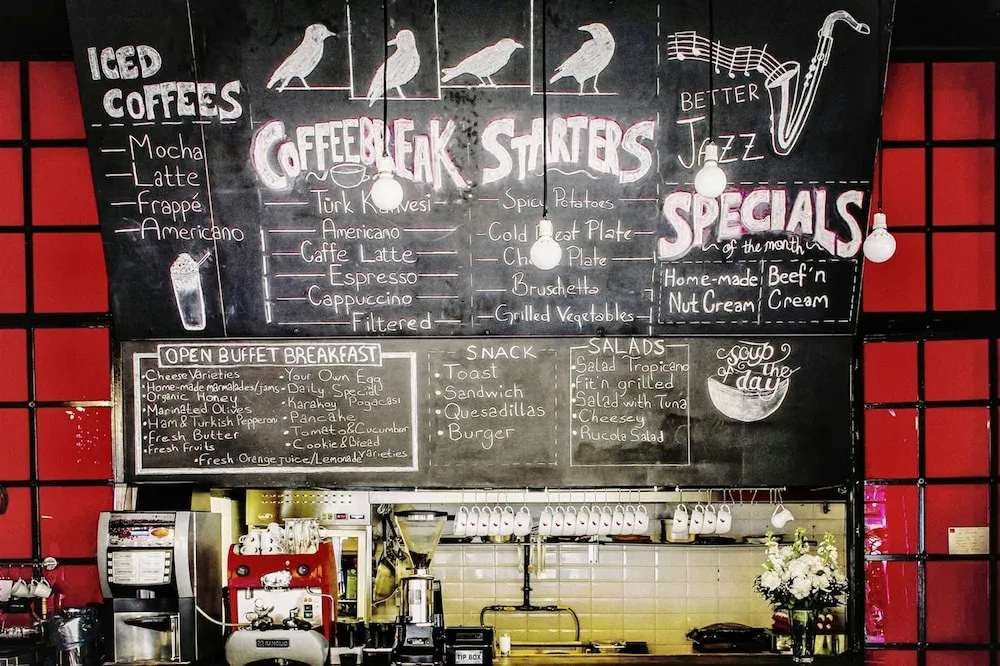 ICED
COFFEES
Mocha
Latte
Frappé
Americano
COFFEEBREAK
Türk
Americano
Caffe Latte
Espresso
Cappuccino
Filtered
STARTERS
Spicy Potatoes
Cold Plate
Plate
Bruschetta
Grilled Vegetables
BETTER
JAZZ
SPECIALS
of the month
Home-made
Nut Cream
Beef'n
Cream
OPEN BUFFET BREAKFAST
Cheese Varieties
Home-made marmalades/jams
Organic Honey
Marinated Olives
Ham & Turkish Pepperoni
Fresh Butter
Fresh Fruits
Your Own Egg
Daily Special
Karakoy Pogacasi
Pancake
Tomato & Cucumber
Cookie & Bread
varieties
Fresh Orange juice/Lemonade
SNACK
Toast
Sandwich
Quesadillas
Burger
SALADS
Salad Tropicano
Fit'n grilled
Salad with Tuna
Cheesey
Rucola Salad
soup
of the
day
TIP BOX